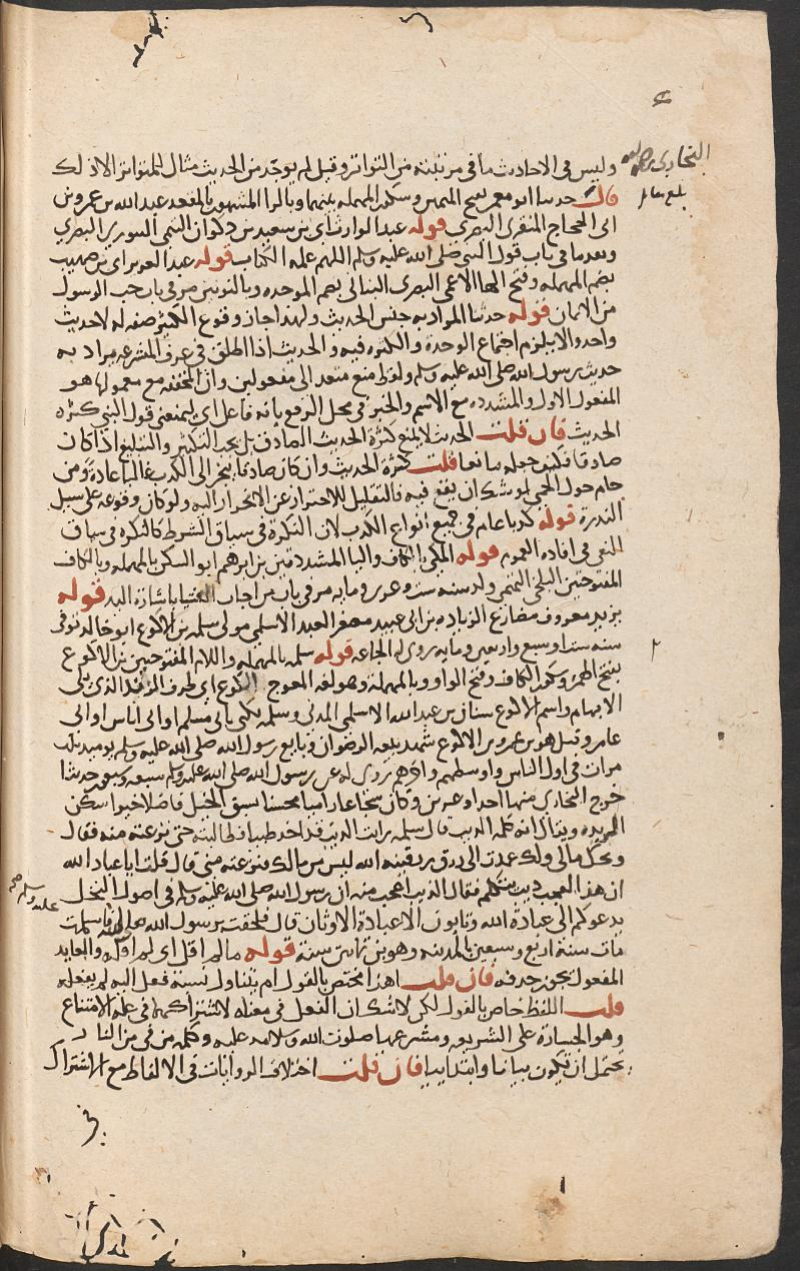 البخاري رحمه الله
وليس في الاحاديث ما في مرتبته من التواتر وقيل لم يوجد من الحديث مثال للمتواتر الا ذلك
بلغ مقابلة
قال حدثنا ابو معمر بفتح الميمين وسكون المهملة بينهما وبالراء المشهور بالمقعد عبد الله بن عمرو بن
ابي الحجاج المنقري البصري قوله عبد الوارث اي بن سعيد بن ذكوان التيمي البصري
وتقدما في باب قول النبي صلى الله عليه وسلم اللهم علمه الكتاب قوله عبد العزيز اي بن صهيب
بضم المهملة وفتح الهاء الاعمى البصري البناني بضم الموحدة وبالنونين مر في باب حب الرسول
من الايمان قوله حدثنا المراد به جنس الحديث ولهذا جاز وقوع الكثير صفة له لا حديث
واحد والا يلزم اجتماع الوحدة والكثرة فيه والحديث اذا اطلق في عرف المتشرعة يراد به
حديث رسول الله صلى الله عليه وسلم ولفظ منع متعد الى مفعولين وان المخففة مع معمولها هو
المفعول الاول والمشددة مع الاسم والخبر في محل الرفع بانه فاعل اي ليمنعني قول النبي كثرة
الحديث فان قلت الحديث لا يمنع كثرة الحديث الصادق بل يجب التكثير والتبليغ اذا كان
صادقا فكيف جعله مانعا قلت كثرة الحديث وان كان صادقا ينجر الى الكذب غالبا عادة ومن
حام حول الحمى يوشك ان يقع فيه فالتقليل للاحتراز عن الانجرار اليه ولو كان وقوعه على سبيل
الندرة قوله كذبا عام في جميع انواع الكذب لان النكرة في سياق الشرط كالنكرة في سياق
النفي في افادة العموم قوله المكي بالكاف والياء المشددتين بن ابرهيم ابو السكن بالمهملة وبالكاف
المفتوحتين البلخي التميمي ولد سنة ست وعشرين وماية مر في باب من اجاب الفتيا باشارة اليد قوله
يزيد معروف مضارع الزيادة بن ابي عبيد مصغر العبد الاسلمي مولى سلمة بن الاكوع ابو خالد توفي
سنة ست او سبع واربعين وماية روى له الجماعة قوله سلمة بالمهملة واللام المفتوحتين بن الاكوع
بفتح الهمزة وسكون الكاف وفتح الواو وبالمهملة وهو لغة المعوج الكوع اي طرف الزند الذي يلي
الابهام واسم الاكوع سنان بن عبد الله الاسلمي المدني وسلمة يكنى بابي مسلم او ابي اياس او ابي
عامر وقيل هو بن عمرو بن الاكوع شهد بيعة الرضوان وبايع رسول الله صلى الله عليه وسلم يوميذ ثلث
مرات في اول الناس واوسطهم واخرهم روي له عن رسول الله صلى الله عليه وسلم سبعة وسبعون حديثا
خرج البخاري منها احدا وعشرين وكان شجاعا راميا محسنا يسبق الخيل فاضلا خيرا سكن
الربذة ويقال انه كلمه الذيب قال سلمة رايت الذيب قد اخذ ظبيا فطلبته حتى نزعته منه فقال
ويحك مالي ولك عمدت الى رزق رزقنيه الله ليس من مالك فنزعته مني قال قلت ايا عباد الله
ان هذا لعجب ذيب متكلم فقال الذيب اعجب منه ان رسول الله صلى الله عليه وسلم في اصول النخل
يدعوكم الى عبادة الله وتابون الا عبادة الاوثان قال فلحقت برسول الله صلى الله عليه وسلم فاسلمت
مات سنة اربع وسبعين بالمدينة وهو بن ثمانين سنة قوله ما لم اقل اي لم اقله والعايد
المفعول يجوز حذفه فان قلت اهذا مختص بالقول ام يتناول نسبة فعل اليه لم يفعله
قلت اللفظ خاص بالقول لكن لا شك ان الفعل في معناه لاشتراكهما في علة الامتناع
وهو الجسارة على الشريعة ومشرعها صلوات الله وسلامه عليه وكلمة من في من النار
يحتمل ان تكون بيانا وابتدائية فان قلت اختلاف الروايات في الالفاظ مع الاشتراك